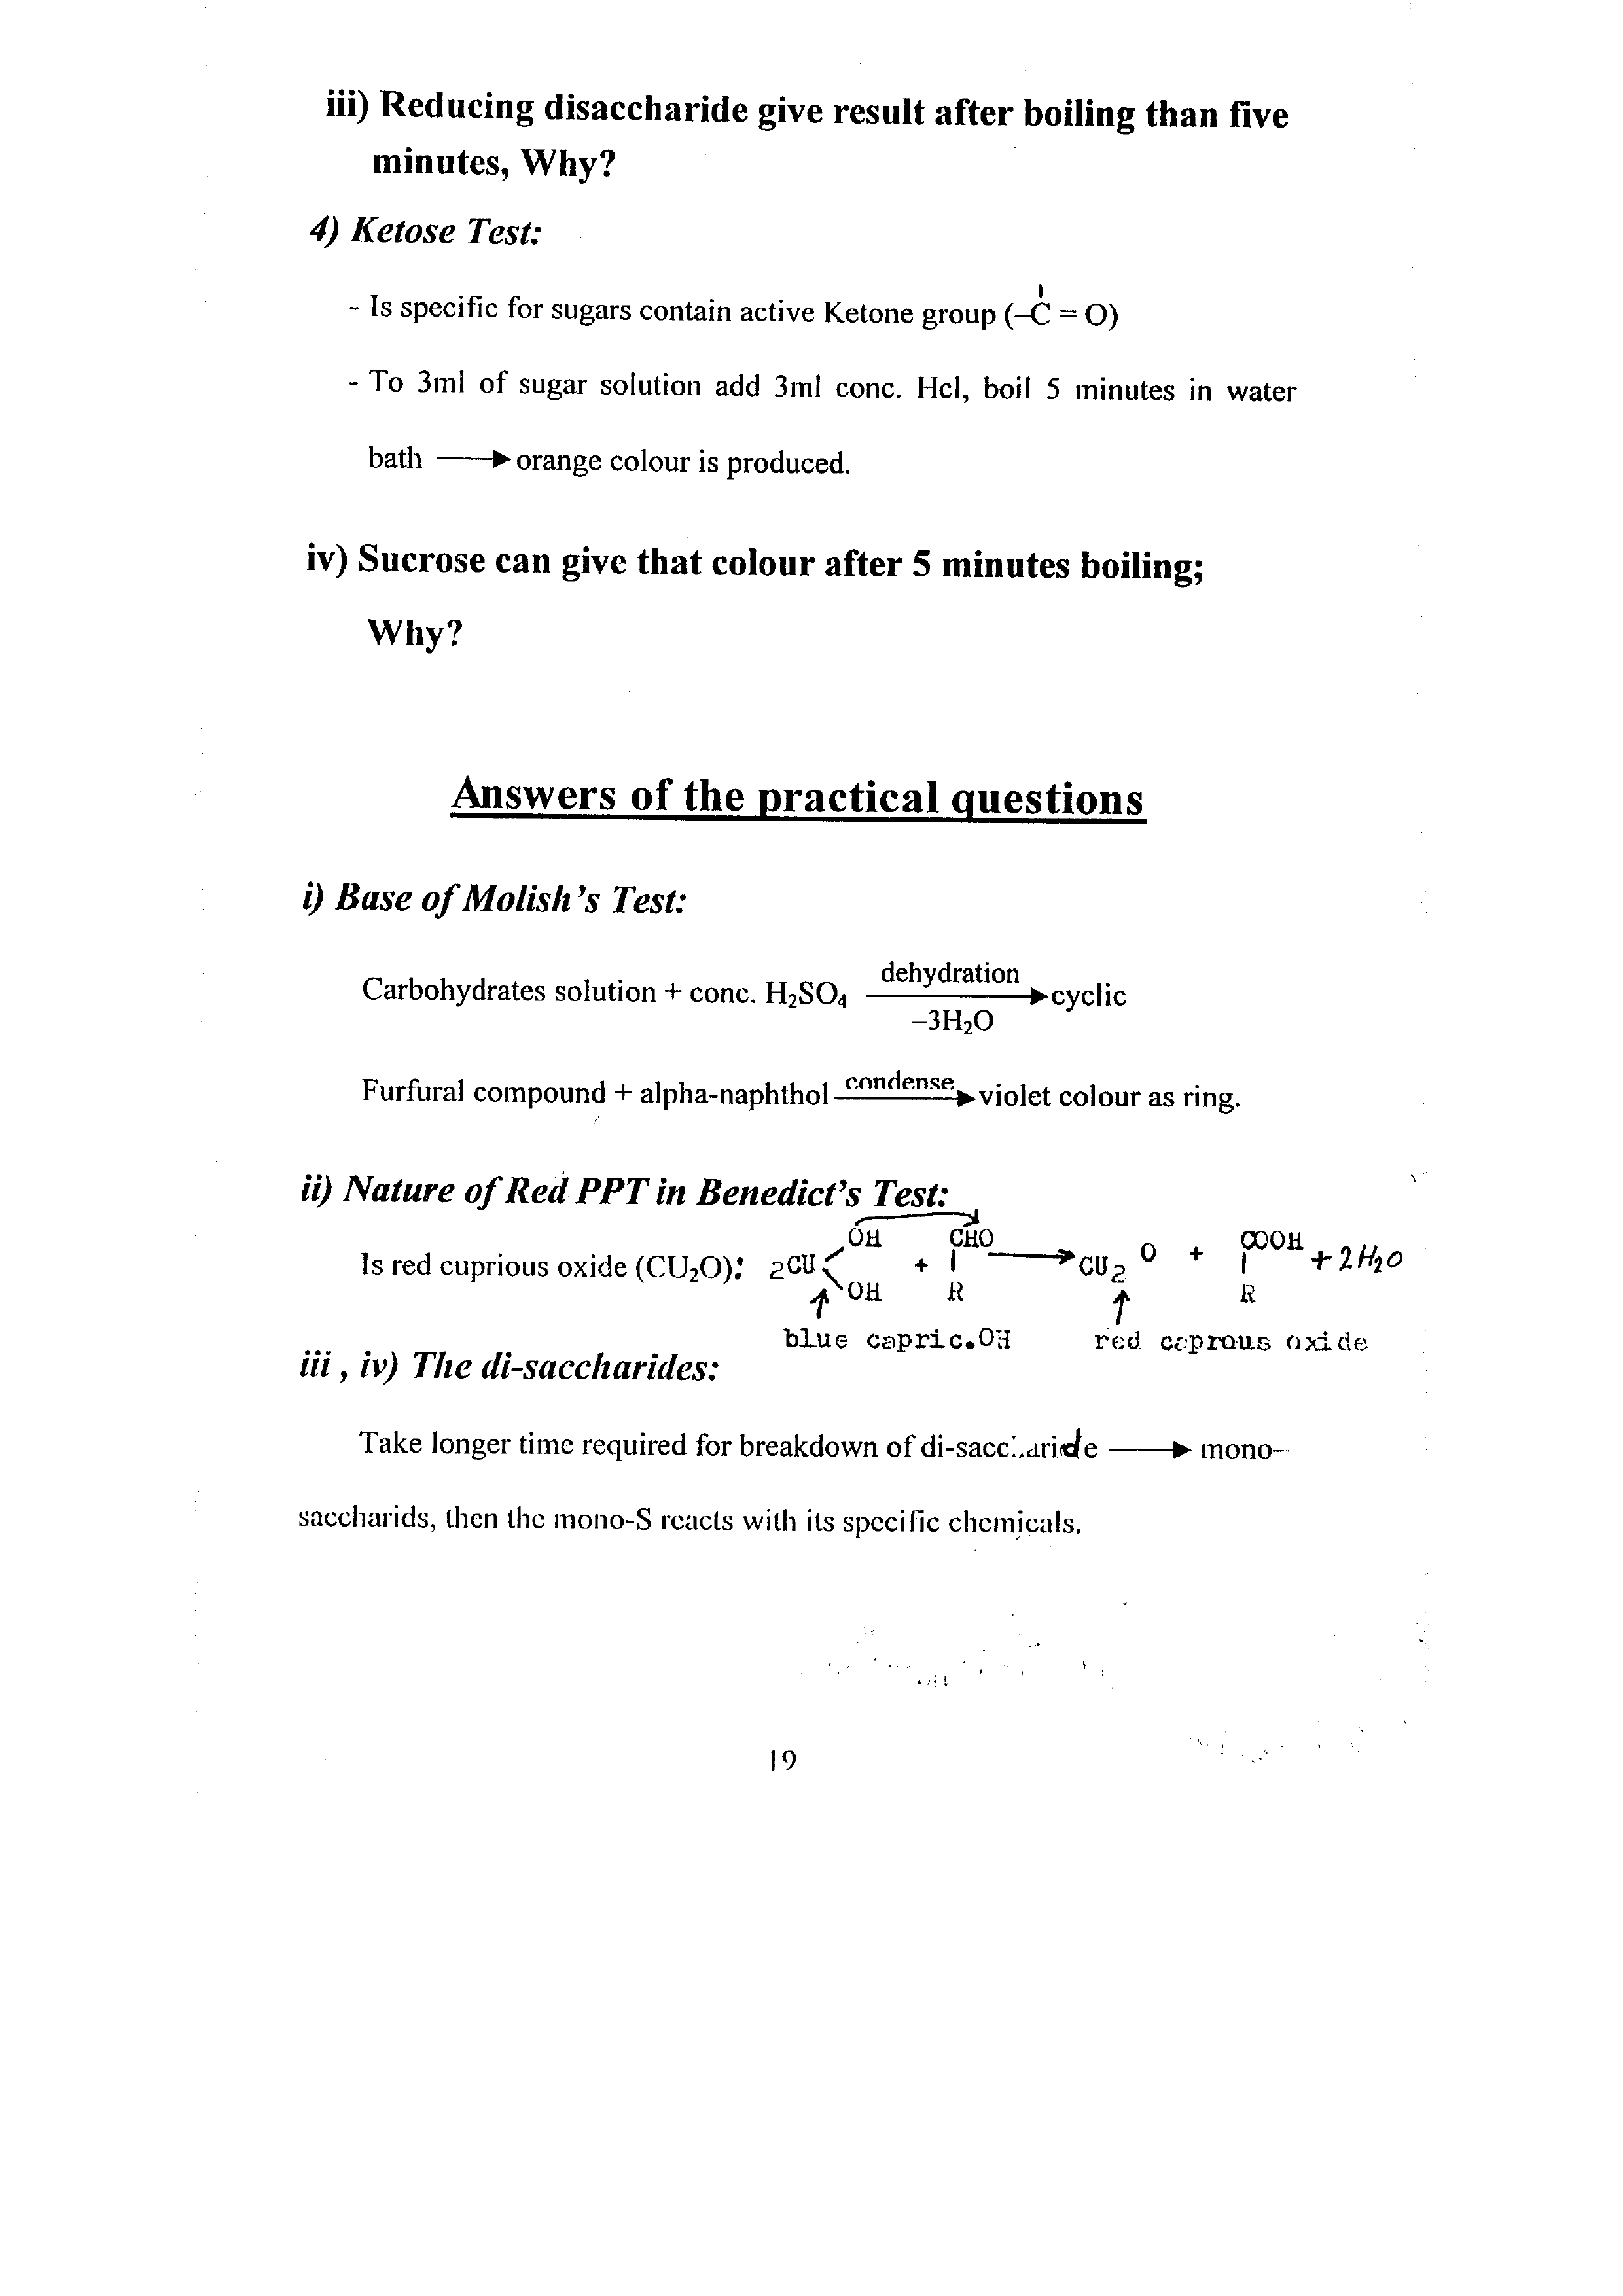 iii) Reducing disaccharide give result after boiling than five
minutes, Why?
4) Ketose Test:
- Is specific for sugars contain active Ketone group (–C = O)
- To 3ml of sugar solution add 3ml conc. Hcl, boil 5 minutes in water
bath → orange colour is produced.
iv) Sucrose can give that colour after 5 minutes boiling;
Why?
Answers of the practical questions
i) Base of Molish's Test:
dehydration
Carbohydrates solution + conc. H₂SO₄ → cyclic
–3H₂O
Furfural compound + alpha-naphthol condense → violet colour as ring.
ii) Nature of Red PPT in Benedict's Test:
OH CHO COOH
Is red cuprious oxide (CU₂O): 2CU + → CU₂ O + + 2H₂O
OH R R
blue capric.OH red caprous oxide
iii , iv) The di-saccharides:
Take longer time required for breakdown of di-saccharide → mono–
saccharids, then the mono-S reacts with its specific chemicals.
19